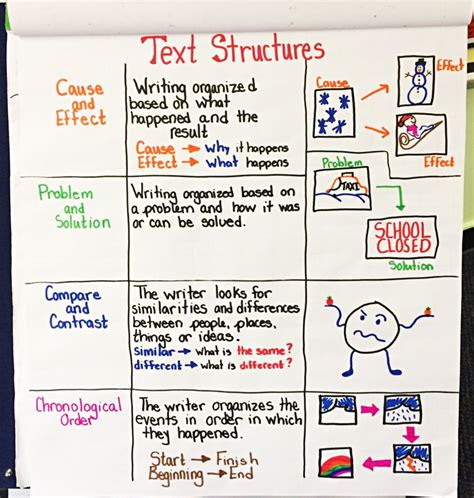 Text Structures
Cause
and
Effect
Writing organized
based on what
happened and the
result
Cause → Why it happens
Effect → What happens
Cause
Effect
Effect
Problem
and
Solution
Writing organized based on
a problem and how it was
or can be solved.
Problem
TAXI
SCHOOL
CLOSED
Solution
Compare
and
Contrast
The writer looks for
similarities and differences
between people, places,
things or ideas.
similar → what is the same?
different → what is different?
Chronological
Order
The writer organizes the
events in order in which
they happened.
Start → Finish
Beginning → End